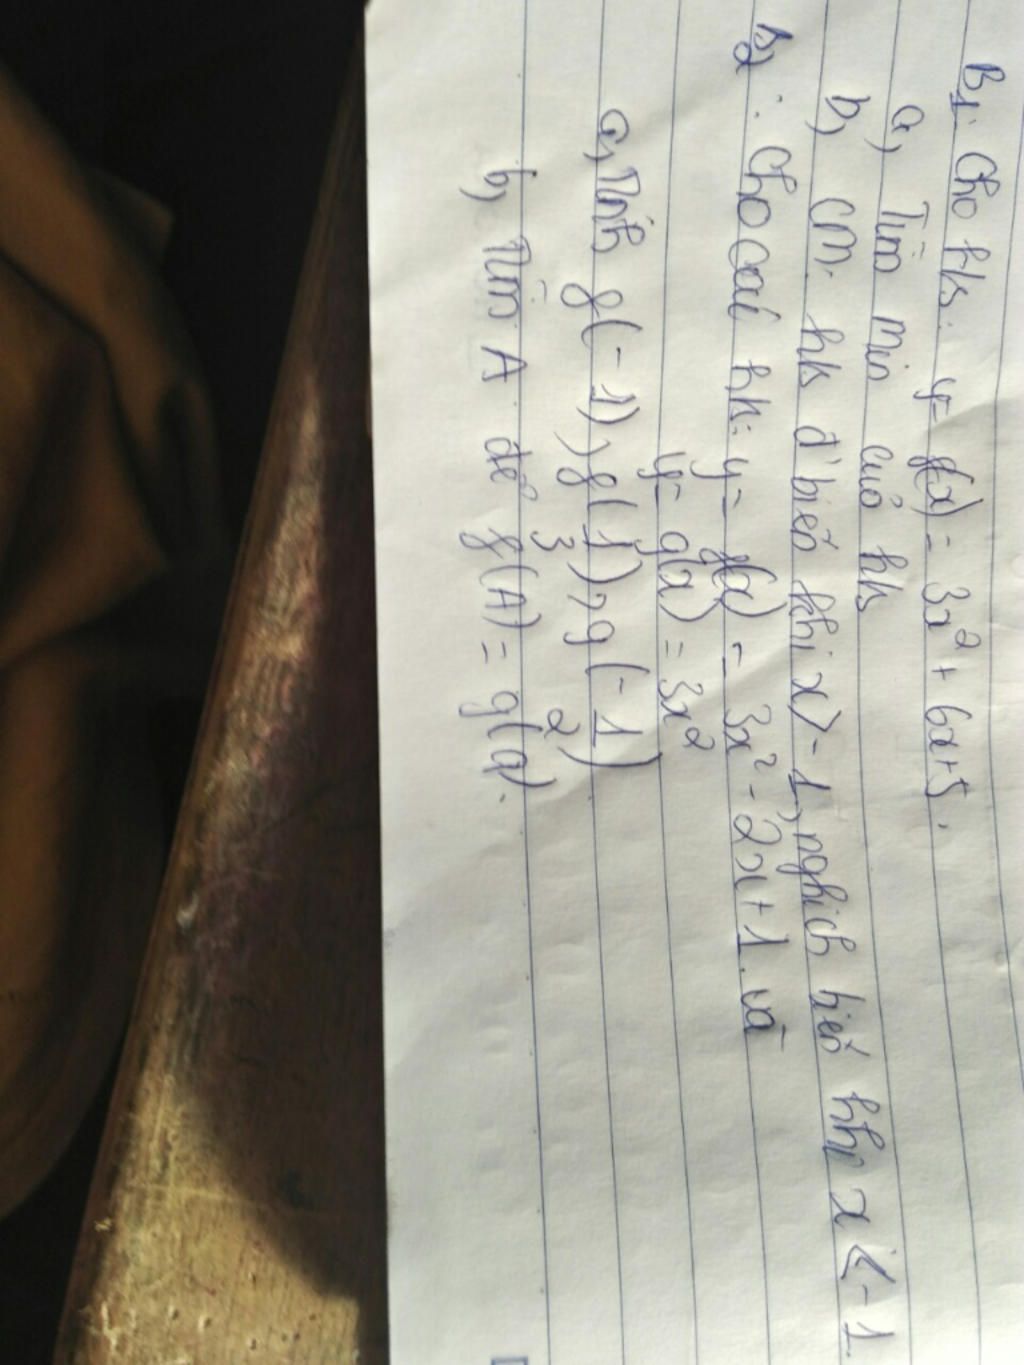 B1: Cho h/s: y = f(x) = 3x² + 6x + 5.
a, Tìm min của hs
b, CM. hs đ' biến khi x > -1, nghịch biến khi x < -1
B2: Cho các hs: y = f(x) = 3x² - 2x + 1 và
y = g(x) = 3x²
a, Tính f(-1), f(1/3), g(-1/2)
b, Tìm A để f(A) = g(a).